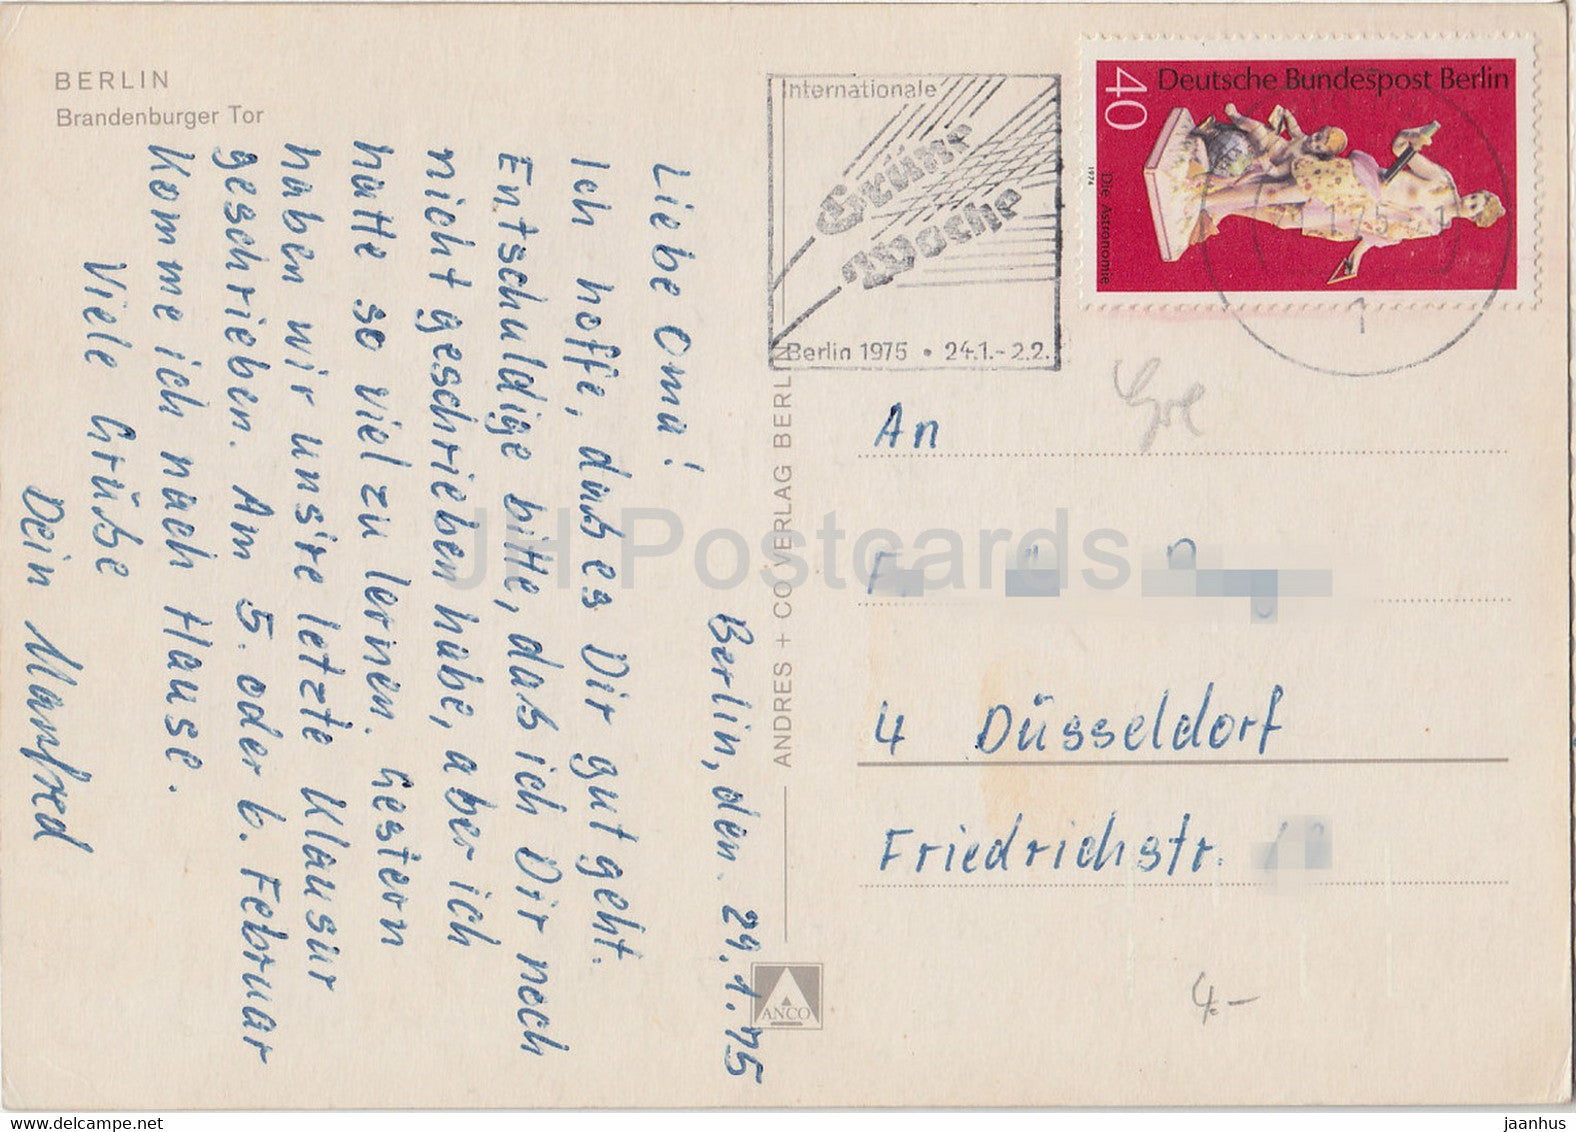 BERLIN
Brandenburger Tor
Berlin, den. 29.1.75
Liebe Oma!
Ich hoffe, daß es Dir gut geht.
Entschuldige bitte, daß ich Dir noch
nicht geschrieben habe, aber ich
hatte so viel zu lernen. Gestern
haben wir uns're letzte Klausur
geschrieben. Am 5. oder 6. Februar
komme ich nach Hause.
Viele Grüße
Dein Manfred
ANDRES + CO VERLAG BERLIN
ANCO
Internationale
Grüne
Woche
Berlin 1975 • 24.1.-2.2.
Deutsche Bundespost Berlin
40
1974
Die Astronomie
1
An
4 Düsseldorf
Friedrichstr.
4.-
JH Postcards
www.delcampe.net
jaanhus